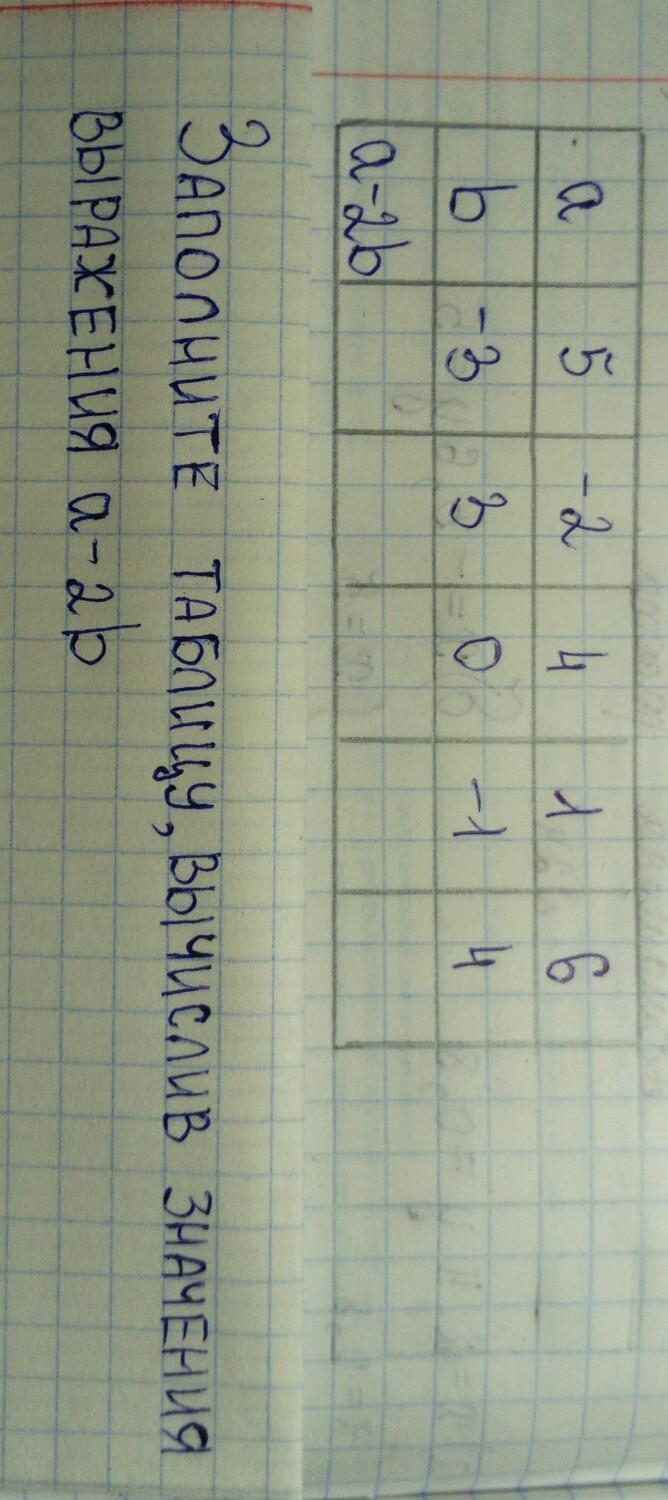 a 5 -2 4 1 6
b -3 3 0 -1 4
a-2b
ЗАПОЛНИТЕ ТАБЛИЦУ, ВЫЧИСЛИВ ЗНАЧЕНИЯ
ВЫРАЖЕНИЯ a-2b